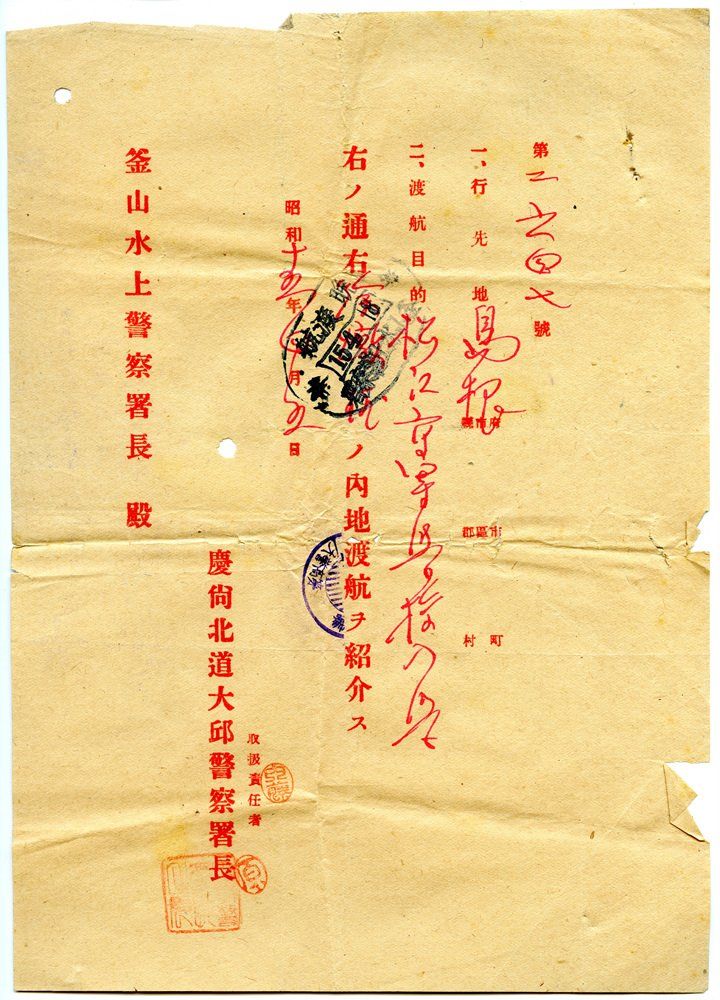 第二六四七號
一、行先地 島根 府市縣 市區郡 町村
二、渡航目的 松江高等学校入学
右ノ通右 ノ內地渡航ヲ紹介ス
昭和十五年 月 日
渡航
154
取扱責任者
慶尙北道大邱警察署長
釜山水上警察署長 殿